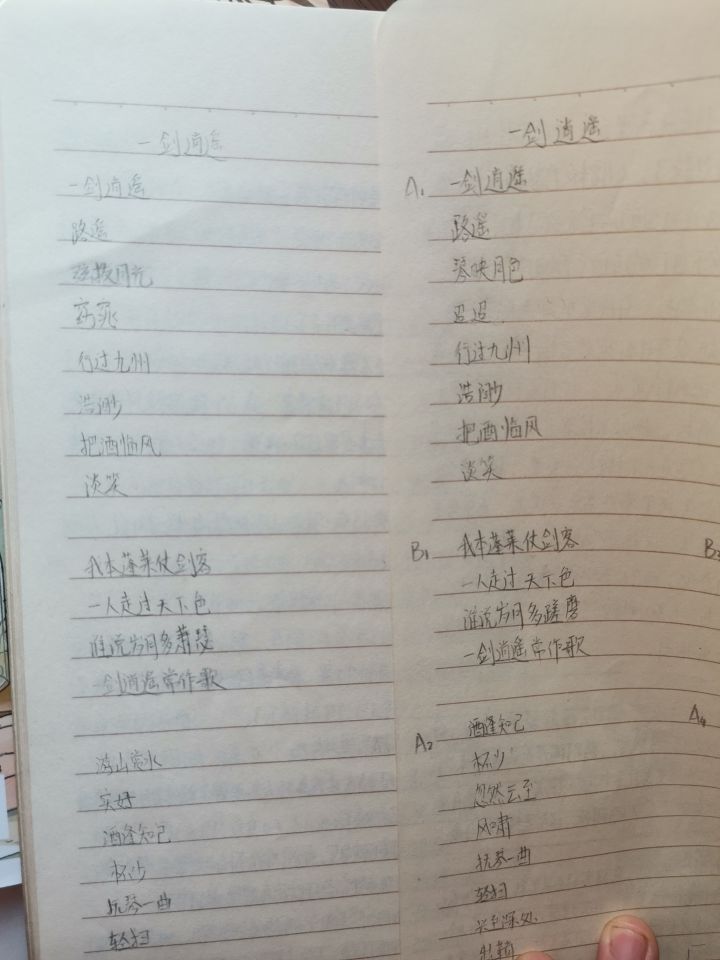 一剑逍遥
一剑逍遥
路遥
月光
行过九州
浩渺
把酒临风
淡笑
我本蓬莱仗剑客
一人走过天下色
谁说岁月多萧瑟
一剑逍遥常作歌
游山赏水
实好
酒逢知己
杯少
抚琴一曲
轻扫
一剑逍遥
A₁ 一剑逍遥
路遥
琴映月色
迢迢
行过九州
浩渺
把酒临风
淡笑
B₁ 我本蓬莱仗剑客
一人走过天下色
谁说岁月多蹉磨
一剑逍遥常作歌
A₂ 酒逢知己
杯少
忽然云至
风啸
抚琴一曲
轻扫
兴到深处
B₂
A₄